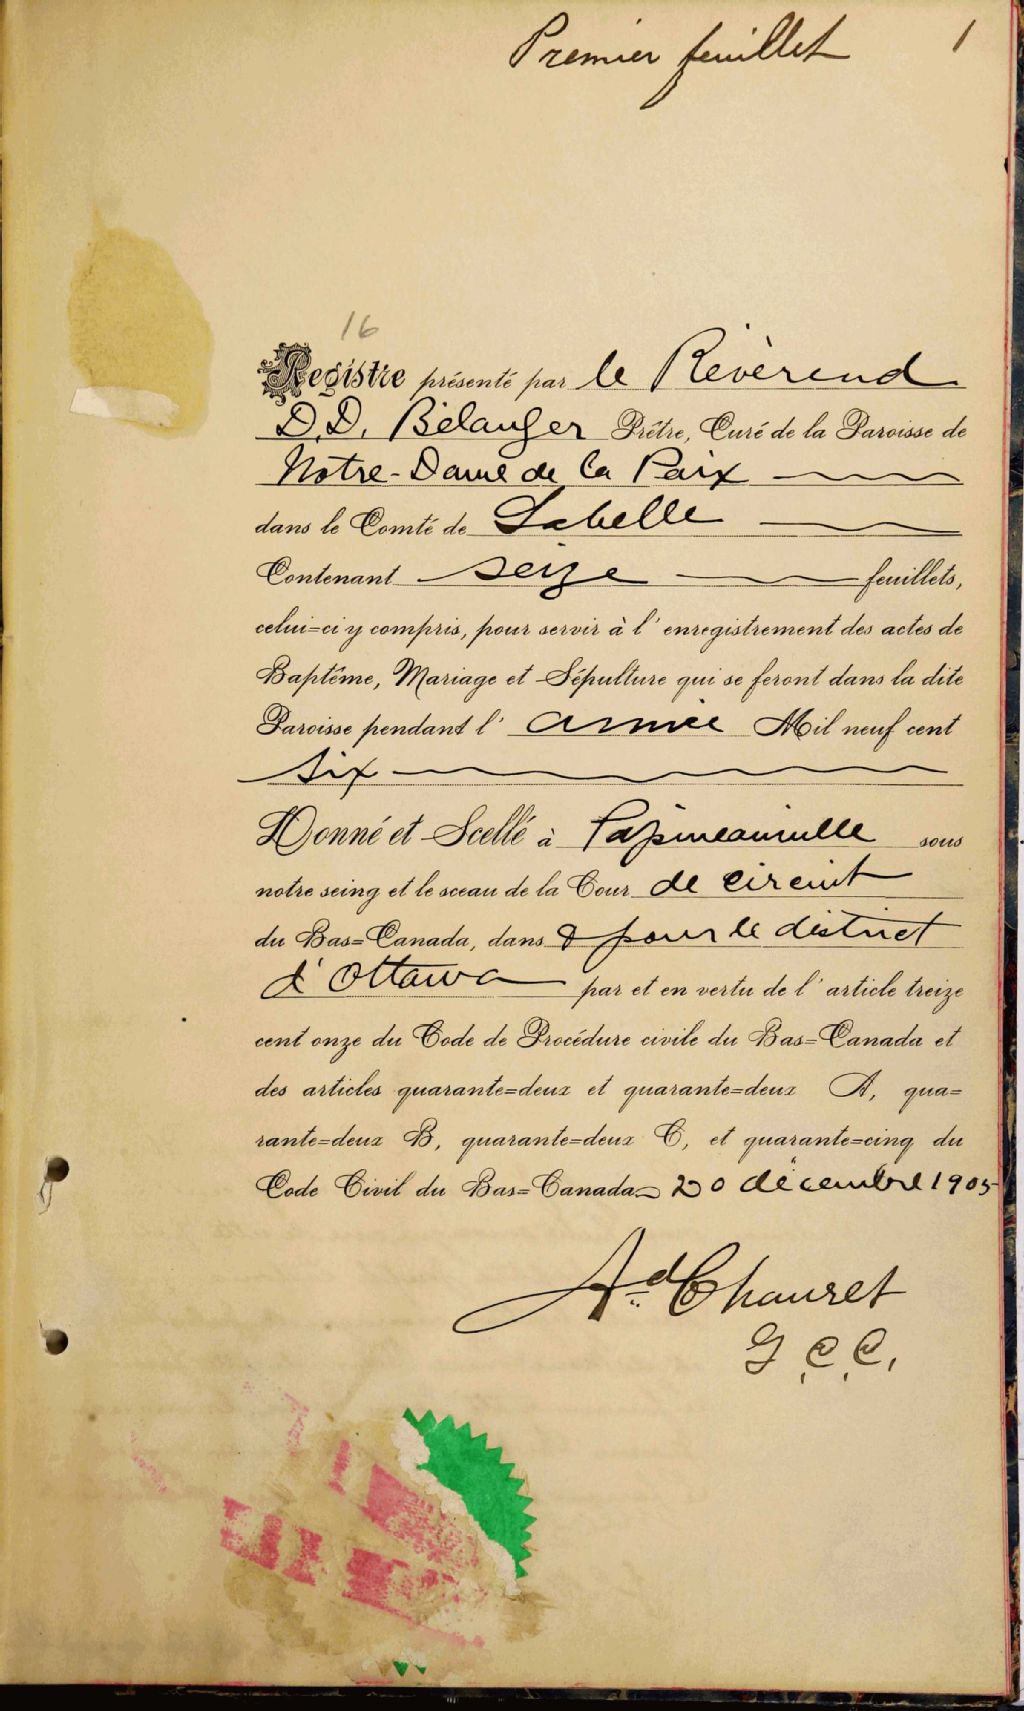 Premier feuillet 1
16
Registre présenté par le Révèrend
D. D. Bélanger Prêtre, Curé de la Paroisse de
Notre-Dame de la Paix
dans le Comté de Labelle
Contenant seize feuillets,
celui=ci y compris, pour servir à l'enregistrement des actes de
Baptême, Mariage et Sépulture qui se feront dans la dite
Paroisse pendant l'année Mil neuf cent
six
Donné et Scellé à Papineauville sous
notre seing et le sceau de la Cour de circuit
du Bas=Canada, dans & pour le district
d'Ottawa par et en vertu de l'article treize
cent onze du Code de Procédure civile du Bas=Canada et
des articles quarante=deux et quarante=deux A, qua=
rante=deux B, quarante=deux C, et quarante=cinq du
Code Civil du Bas=Canada 20 décembre 1905
Ad Chauret
G. C. C.